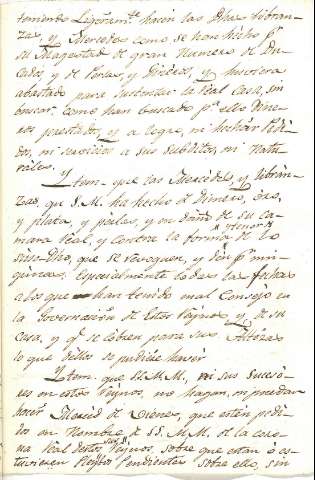 teniendo Ligeramte hacen las dhas libran-
zas, y Mercedes como se han hecho pr
su Magestad de gran numero de Du-
cados, y de Perlas, y Dineros, y huviera
abastado para sustentar la Real Casa, sin
buscar, como han buscado pa ello Dine-
ros prestados, y a logro, ni hechar Pedi-
dos, ni servicios a sus subditos, ni Natu-
rales. Y
Ytem. que las Mercedes, y libran-
zas, qu S. M. ha hecho de dineros, oro,
y plata, y perlas, y en daño de su Ca-
mara Real, y contra la forma, y tenor de lo
suso-dho, que se revoquen, y den pr nin-
gunas. Especialmente todas las fechas
a los que han tenido mal Consejo en
la Governacion de estos Reynos, y de su
Casa, y qe se cobren para sus Altezas
lo que dellos se pudiere haver
Ytem. que SS. MM. ni sus suceso-
res en estos Reynos, no hagan, ni puedan
hacer Merced de bienes, que esten pedi-
dos en Nombre de SS. MM. de la coro-
na Real destos sus Reynos, sobre que estan o es-
tuvieren Pleytos Pendientes sobre ello, sin